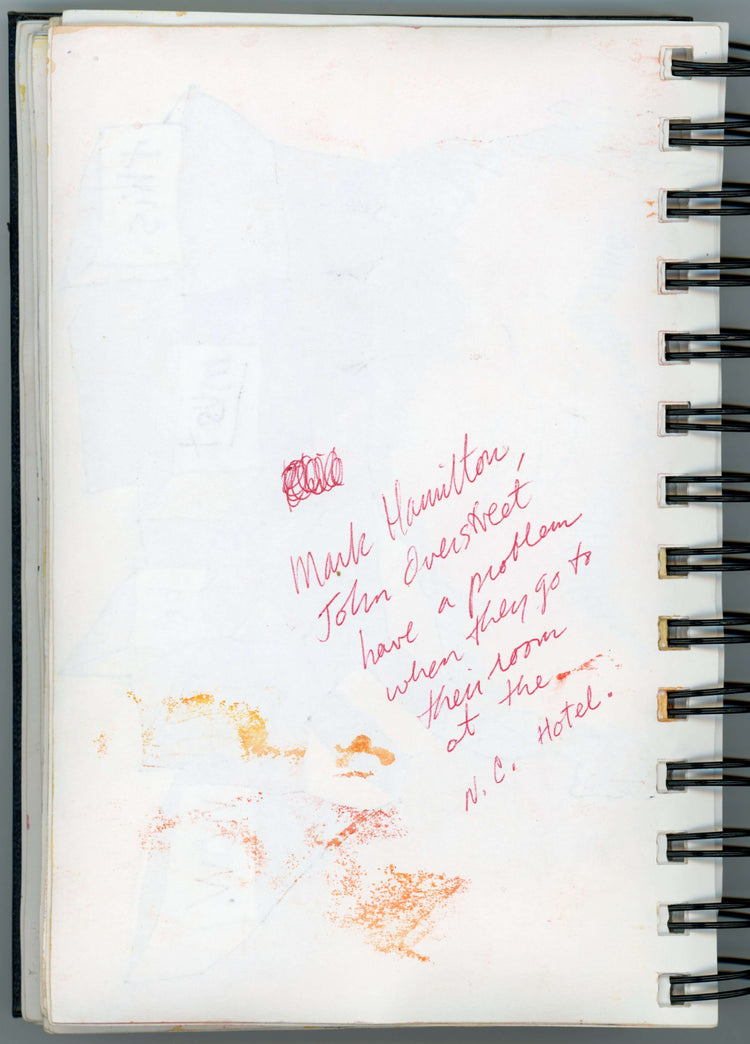 Mark Hamilton,
John Overstreet
have a problem
when they go to
their room
at the
N.C. Hotel.